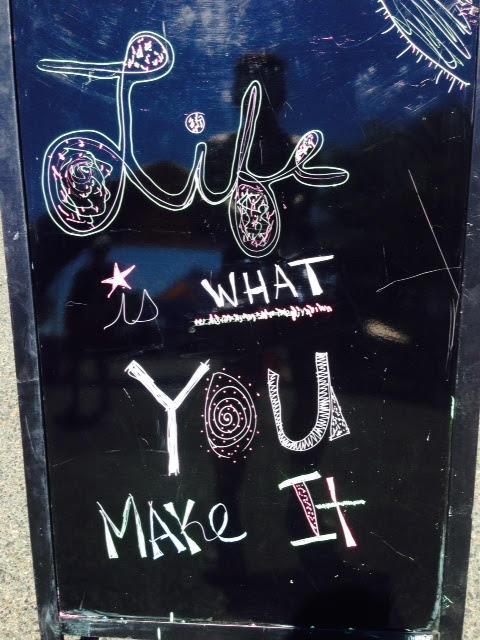 Life
is WHAT
YOU
MAKe It